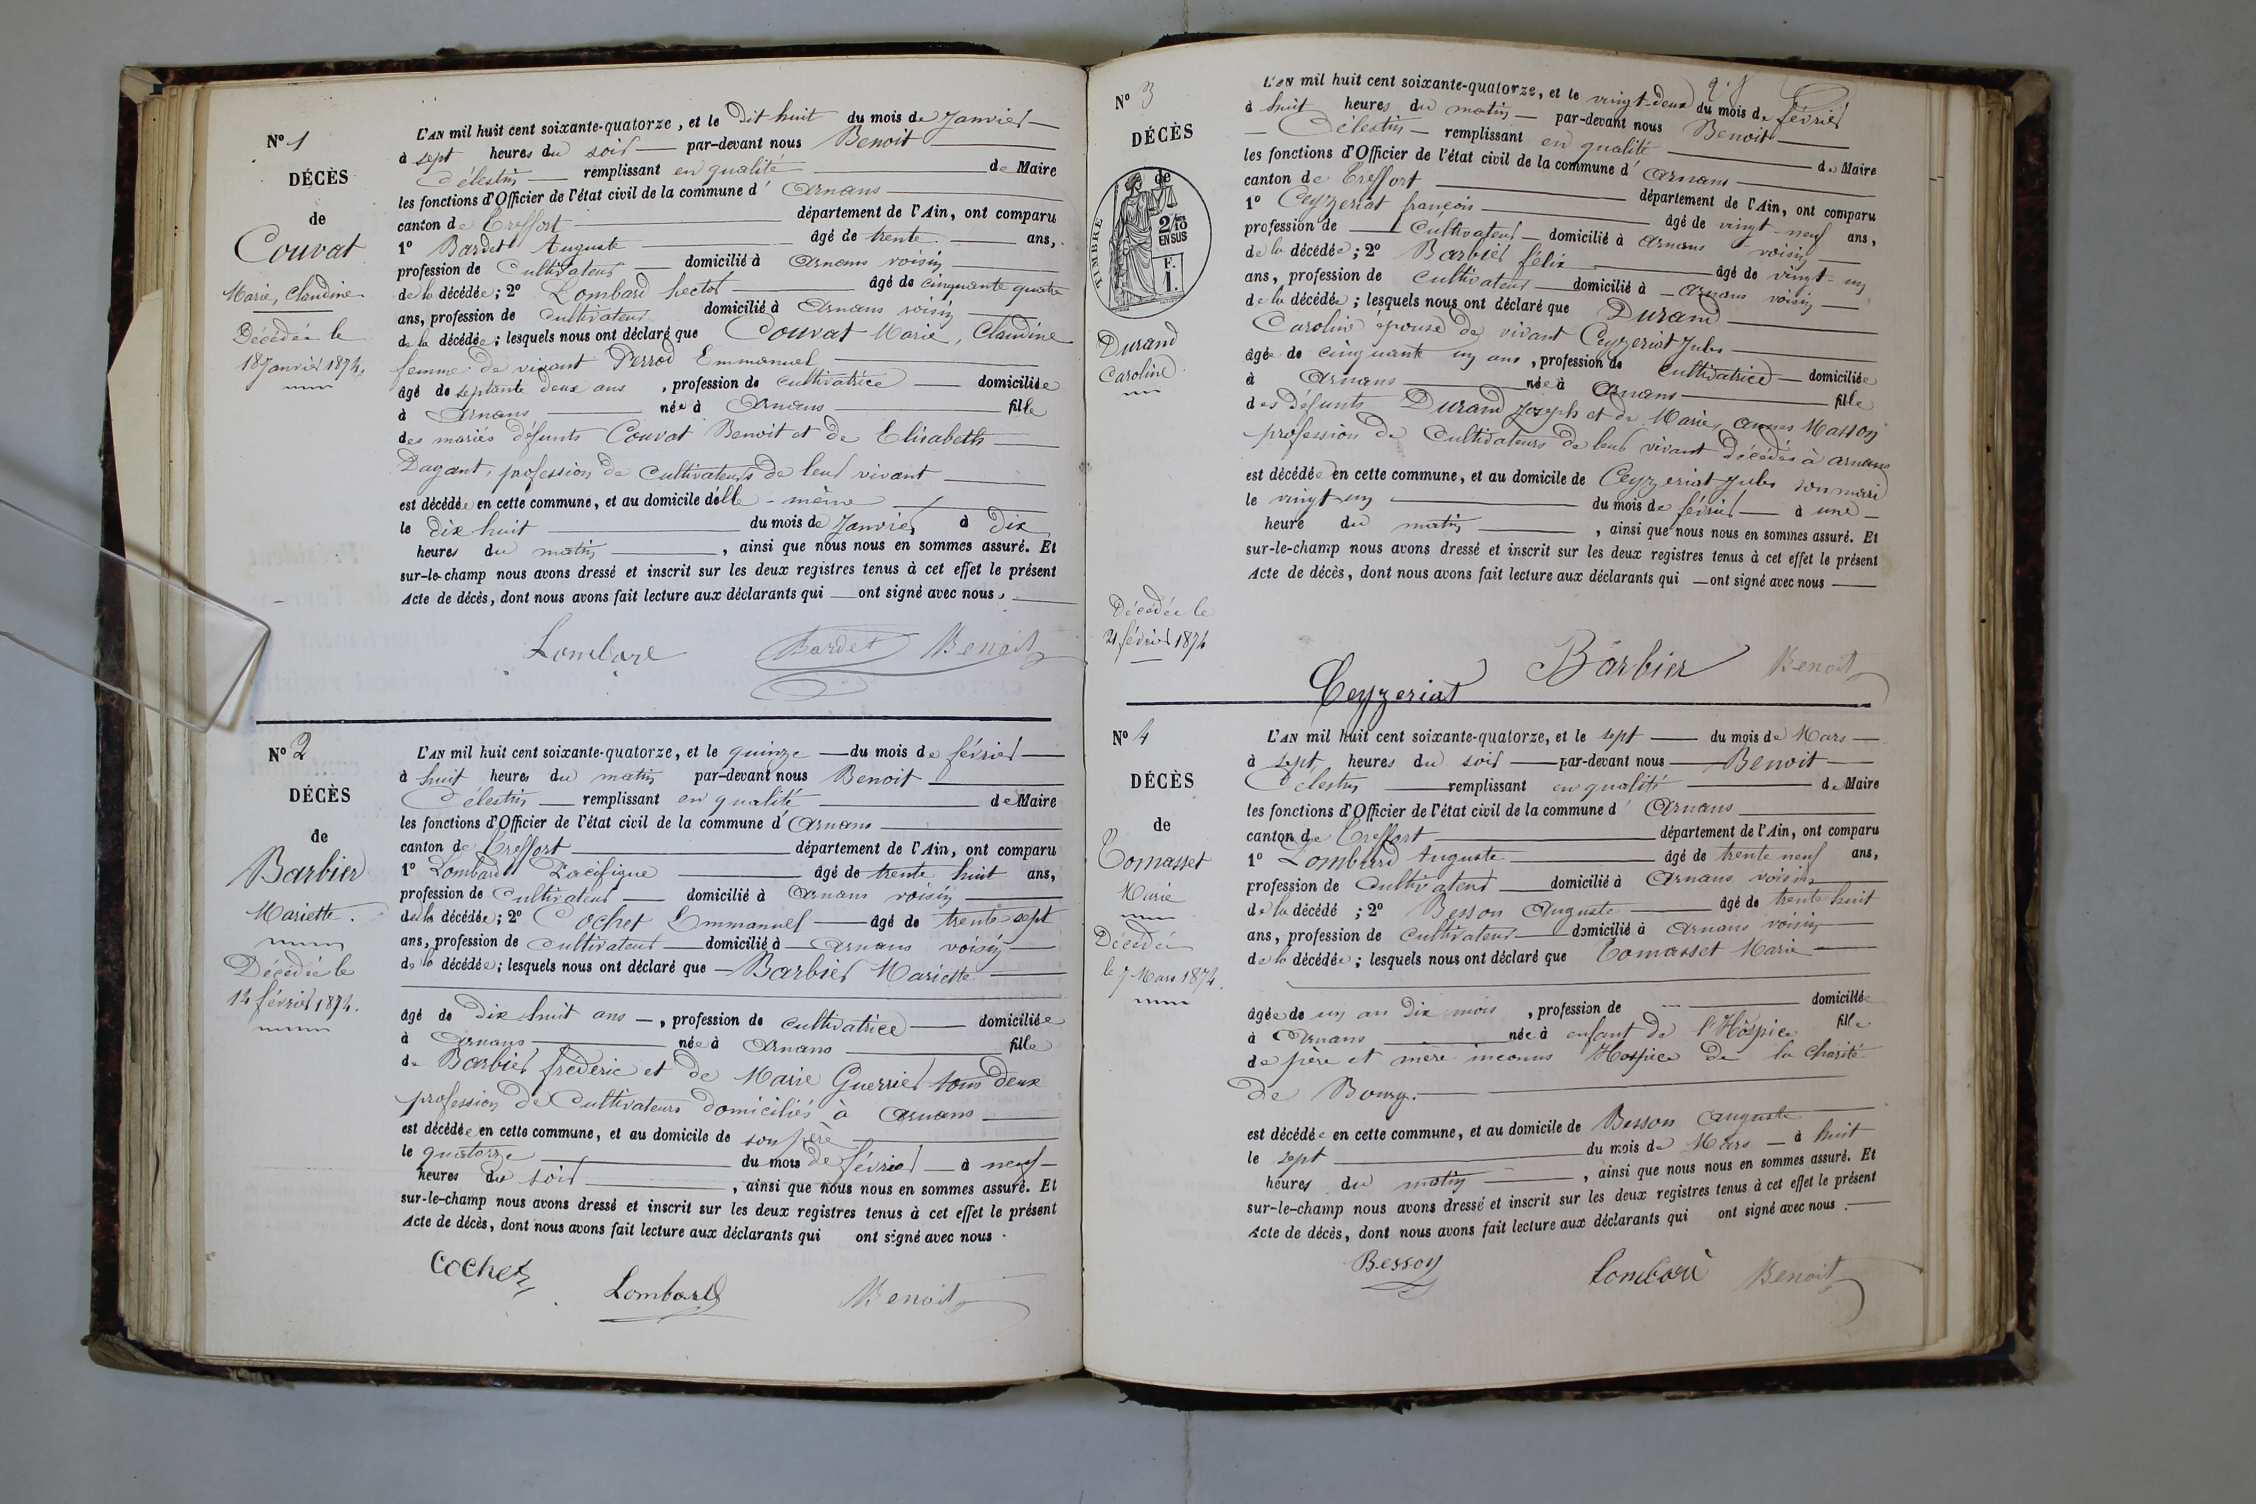 Nº 1
DÉCÈS
de
Couvat
Marie, Claudine
Décédée le
18 Janvier 1874.
L'AN mil huit cent soixante-quatorze, et le Dit huit du mois de Janvier
à sept heures du soir par-devant nous Benoit
Célestin remplissant en qualité de Maire
les fonctions d'Officier de l'état civil de la commune d' Arnans
canton de Treffort département de l'Ain, ont comparu
1º Bardet Auguste âgé de trente ans,
profession de Cultivateur domicilié à Arnans voisin
de la décédée; 2º Lombard hector âgé de cinquante quatre
ans, profession de Cultivateur domicilié à Arnans voisin
de la décédée; lesquels nous ont déclaré que Couvat Marie, Claudine
femme de vivant Perrod Emmanuel
âgé de septante deux ans, profession de cultivatrice domiciliée
à Arnans née à Arnans fille
des mariés défunts Couvat Benoit et de Elisabeth
Dagant, profession de Cultivateurs de leur vivant
est décédée en cette commune, et au domicile d'elle-même
le dix huit du mois de Janvier à dix
heures du matin, ainsi que nous nous en sommes assuré. Et
sur-le-champ nous avons dressé et inscrit sur les deux registres tenus à cet effet le présent
Acte de décès, dont nous avons fait lecture aux déclarants qui ont signé avec nous.
Lombard Bardet Benoit
Nº 2
DÉCÈS
de
Barbier
Mariette.
Décédée le
14 février 1874.
L'AN mil huit cent soixante-quatorze, et le quinze du mois de février
à huit heures du matin par-devant nous Benoit
Célestin remplissant en qualité de Maire
les fonctions d'Officier de l'état civil de la commune d' Arnans
canton de Treffort département de l'Ain, ont comparu
1º Lombard Pacifique âgé de trente huit ans,
profession de Cultivateur domicilié à Arnans voisin
de la décédée; 2º Cochet Emmanuel âgé de trente sept
ans, profession de cultivateur domicilié à Arnans voisin
de la décédée; lesquels nous ont déclaré que Barbier Mariette
âgé de Dix huit ans, profession de cultivatrice domiciliée
à Arnans née à Arnans fille
de Barbier frédéric et de Marie Guerrier tous deux
profession de Cultivateurs domiciliés à Arnans
est décédée en cette commune, et au domicile de son père
le quatorze du mois de février à neuf
heures du soir, ainsi que nous nous en sommes assuré. Et
sur-le-champ nous avons dressé et inscrit sur les deux registres tenus à cet effet le présent
Acte de décès, dont nous avons fait lecture aux déclarants qui ont signé avec nous.
Cochet Lombard Benoit
Nº 3
DÉCÈS
de
TIMBRE
2/10
EN SUS
F.
1.
Durand
Caroline
Décédée le
21 février 1874
L'AN mil huit cent soixante-quatorze, et le vingt-deux du mois de février
à huit heures du matin par-devant nous Benoit
Célestin remplissant en qualité de Maire
les fonctions d'Officier de l'état civil de la commune d' Arnans
canton de Treffort département de l'Ain, ont comparu
1º Ceyzeriat françois âgé de vingt-neuf ans,
profession de Cultivateur domicilié à Arnans voisin
de la décédée; 2º Barbier félix âgé de vingt-un
ans, profession de Cultivateur domicilié à Arnans voisin
de la décédée; lesquels nous ont déclaré que Durand
Caroline épouse de vivant Ceyzeriat Jules
âgée de cinquante un ans, profession de Cultivatrice domiciliée
à Arnans née à Arnans fille
des défunts Durand Joseph et de Marie, annes Masson
profession de Cultivateurs de leur vivant Décédés à arnans
est décédée en cette commune, et au domicile de Ceyzeriat Jules son mari
le vingt-un du mois de février à une
heure du matin, ainsi que nous nous en sommes assuré. Et
sur-le-champ nous avons dressé et inscrit sur les deux registres tenus à cet effet le présent
Acte de décès, dont nous avons fait lecture aux déclarants qui ont signé avec nous
Ceyzeriat Barbier Benoit
Nº 4
DÉCÈS
de
Tomasset
Marie
Décédée
le 7 Mars 1874.
L'AN mil huit cent soixante-quatorze, et le sept du mois de Mars
à sept heures du soir par-devant nous Benoit
Célestin remplissant en qualité de Maire
les fonctions d'Officier de l'état civil de la commune d' Arnans
canton de Treffort département de l'Ain, ont comparu
1º Lombard Auguste âgé de trente neuf ans,
profession de Cultivateur domicilié à Arnans voisin
de la décédé; 2º Besson Auguste âgé de trente huit
ans, profession de cultivateur domicilié à Arnans voisin
de la décédée; lesquels nous ont déclaré que Tomasset Marie
âgée de un an Dix mois, profession de domiciliée
à Arnans née à enfant de l'Hospice fille
de père et mère inconus Hospice de la charité
De Bourg.
est décédée en cette commune, et au domicile de Besson Auguste
le sept du mois de Mars à huit
heures du matin, ainsi que nous nous en sommes assuré. Et
sur-le-champ nous avons dressé et inscrit sur les deux registres tenus à cet effet le présent
Acte de décès, dont nous avons fait lecture aux déclarants qui ont signé avec nous.
Besson Lombard Benoit